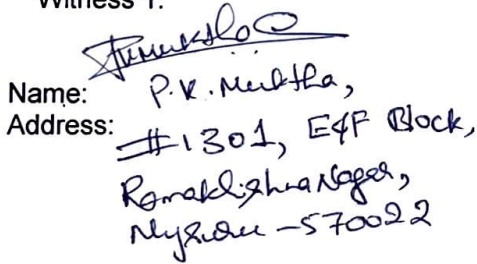 Witness 1:
Name: P.K. Muktha,
Address: #1301, E&F Block,
Ramakrishna Nagar,
Mysuru - 570022